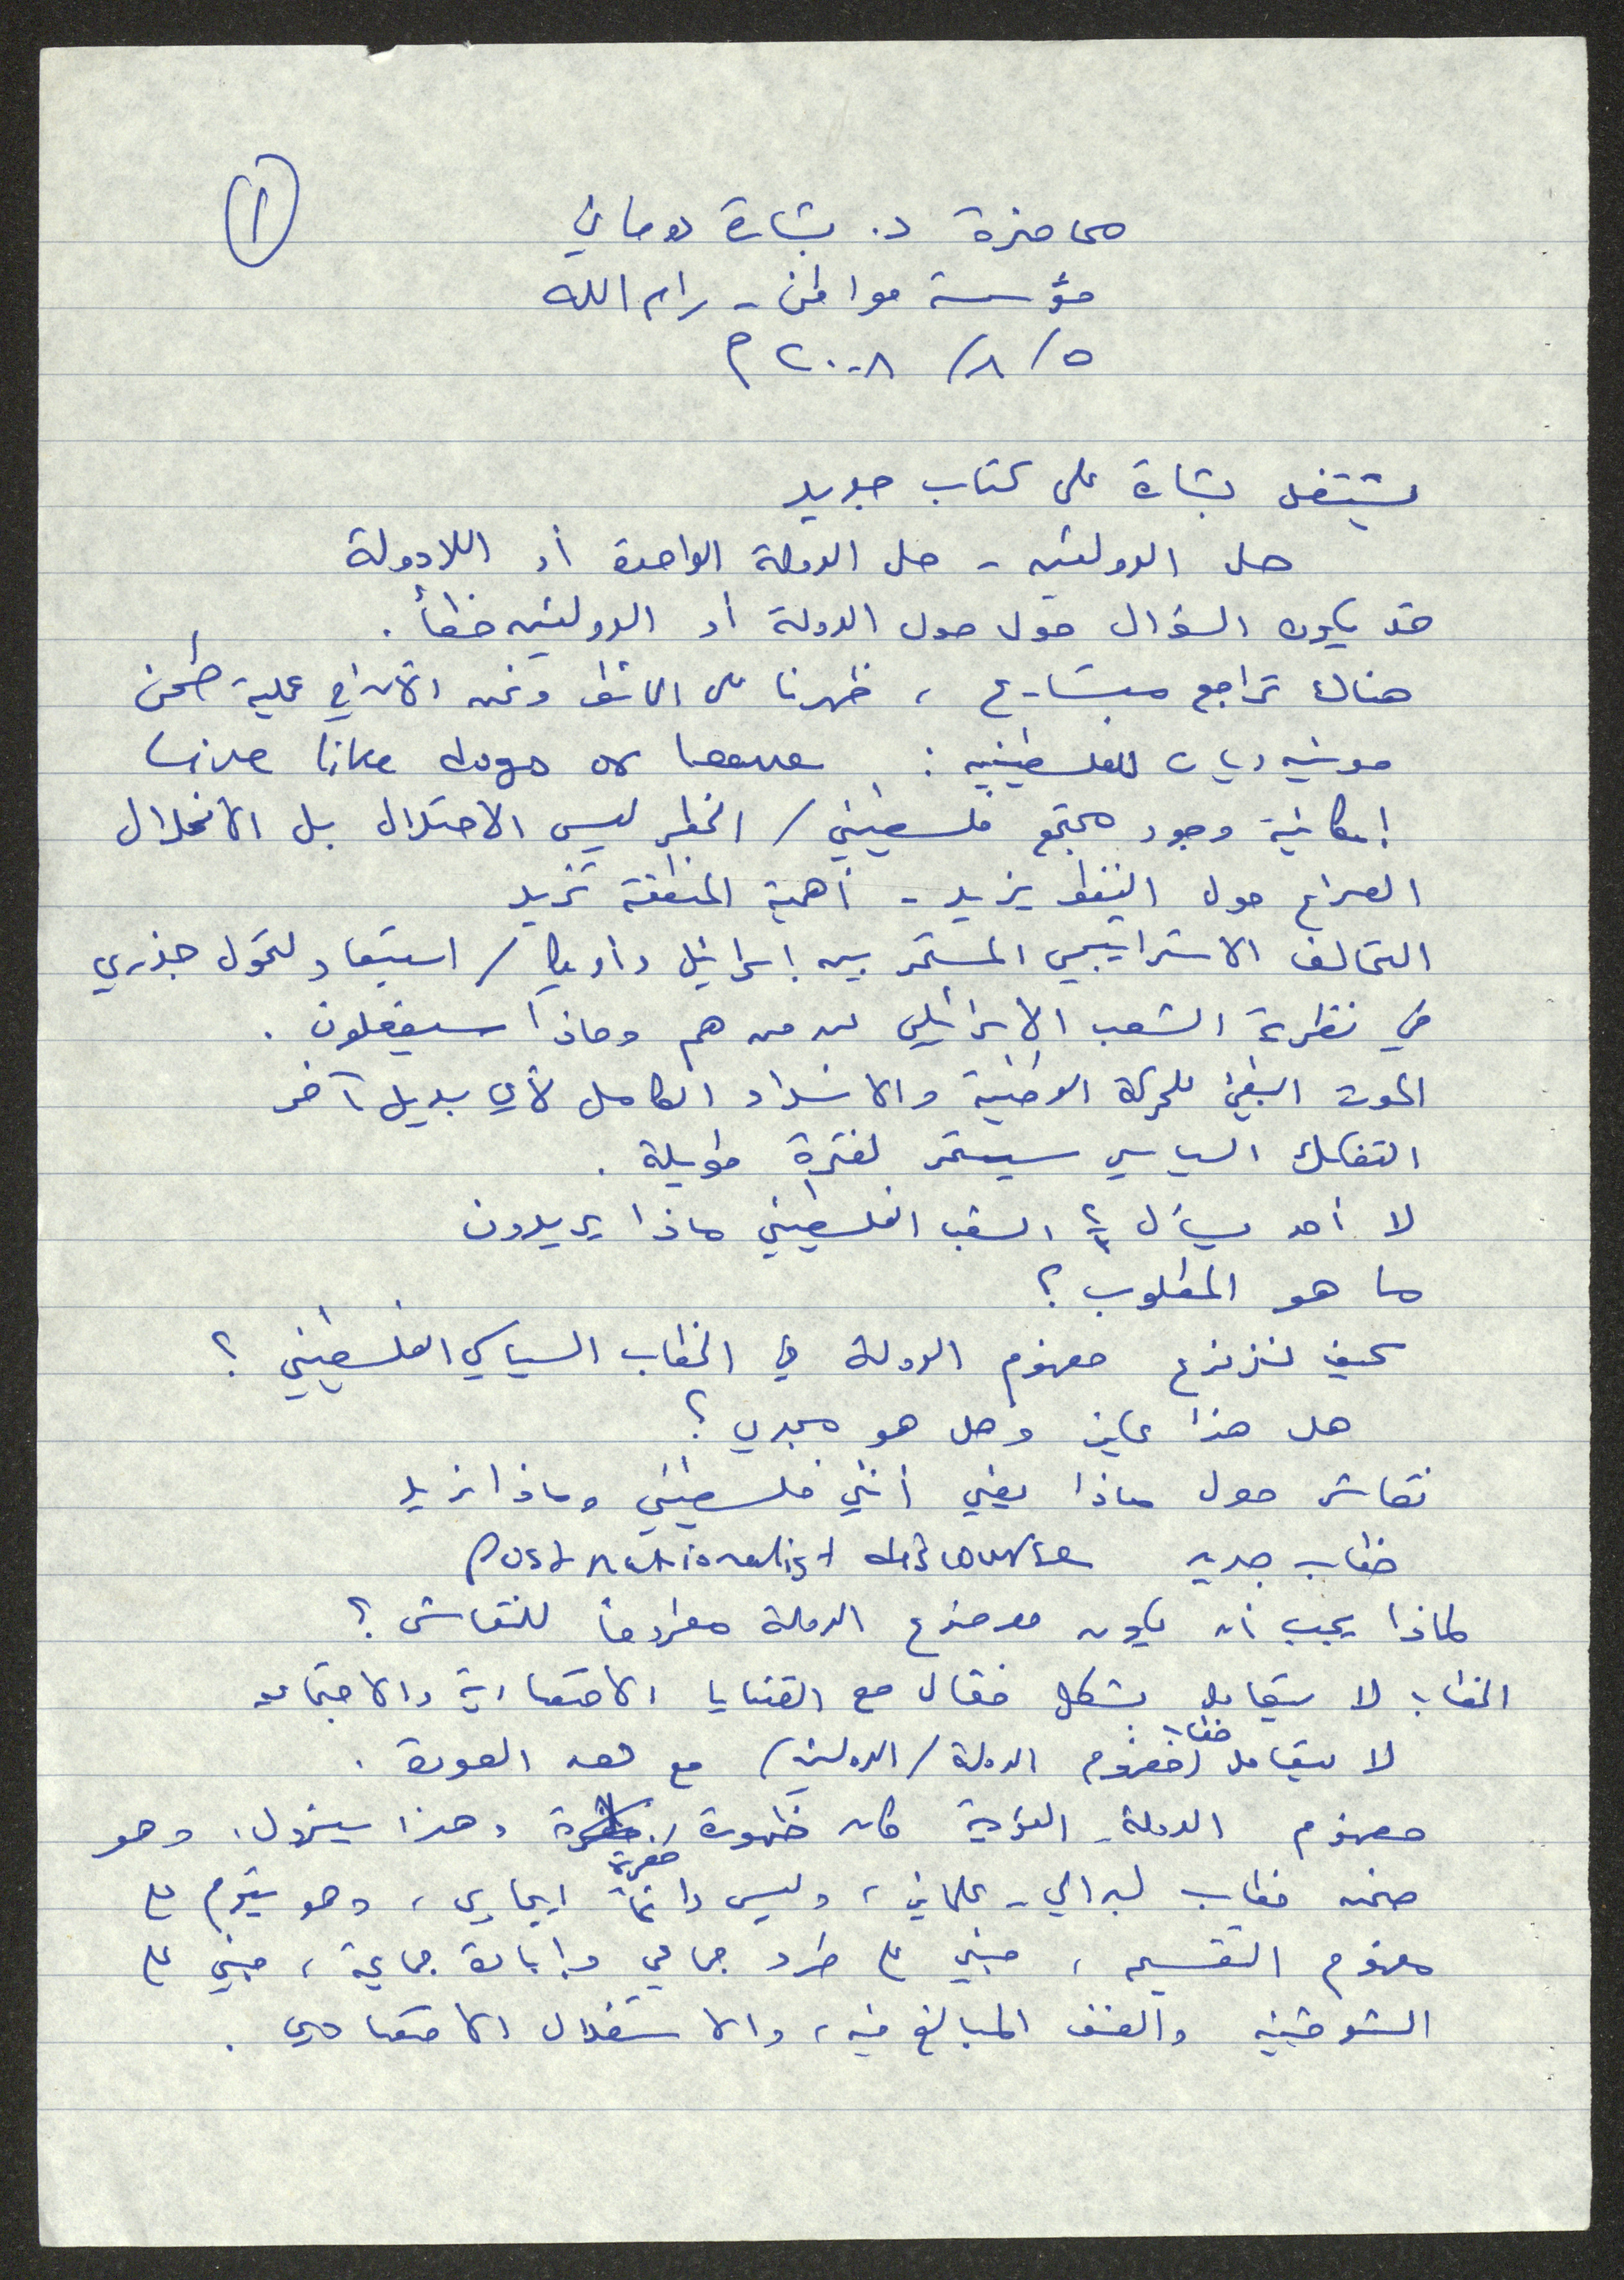 ١
محاضرة د. بشارة دوماني
مؤسسة مواطن - رام الله
٥/ ٨/ ٢٠٠٨ م
يشتغل بشارة على كتاب جديد
حل الدولتين - حل الدولة الواحدة أو اللادولة
قد يكون السؤال حول حول الدولة أو الدولتين خطأ.
هناك تراجع متسارع، ظهرنا على الحائط ونحن الآن في عملية طحن
موشيه ديان للفلسطينيين: Live like dogs or leave
إمكانية وجود مجتمع فلسطيني / الخطر ليس الاحتلال بل الانحلال
الصراع حول النفط يزيد - أهمية المنطقة تزيد
التحالف الاستراتيجي المستمر بين إسرائيل وأمريكا / استبعاد لتحول جذري
في نظرة الشعب الإسرائيلي من هم وماذا سيفعلون.
الموت البطيء للحركة الوطنية والانسداد الكامل لأي بديل آخر
التفكك السياسي سيستمر لفترة طويلة.
لا أحد يسأل الشعب الفلسطيني ماذا يريدون
ما هو المطلوب؟
كيف نزعزع مفهوم الدولة في الخطاب السياسي الفلسطيني؟
هل هذا جايز وهل هو مجدي؟
نقاش حول ماذا يعني أنني فلسطيني وماذا نريد
خطاب جديد Post nationalist discourse
لماذا يجب أن يكون موضوع الدولة مطروحاً للنقاش؟
الخطاب لا يتعامل بشكل فعال مع القضايا الاقتصادية والاجتماعية
لا يتعامل خطاب مفهوم الدولة / الدولتين / مع العودة.
مفهوم الدولة القومية كان وهذا سيزول، وهو
ضمن خطاب لبرالي - علماني، وليس دائماً ايجابي، وهو يقوم على
مفهوم التقسيم، مبني على طرد جماعي وإبادة جماعية، مبني على
الشوفينية والعنف المبالغ فيه، والاستغلال الاقتصادي.